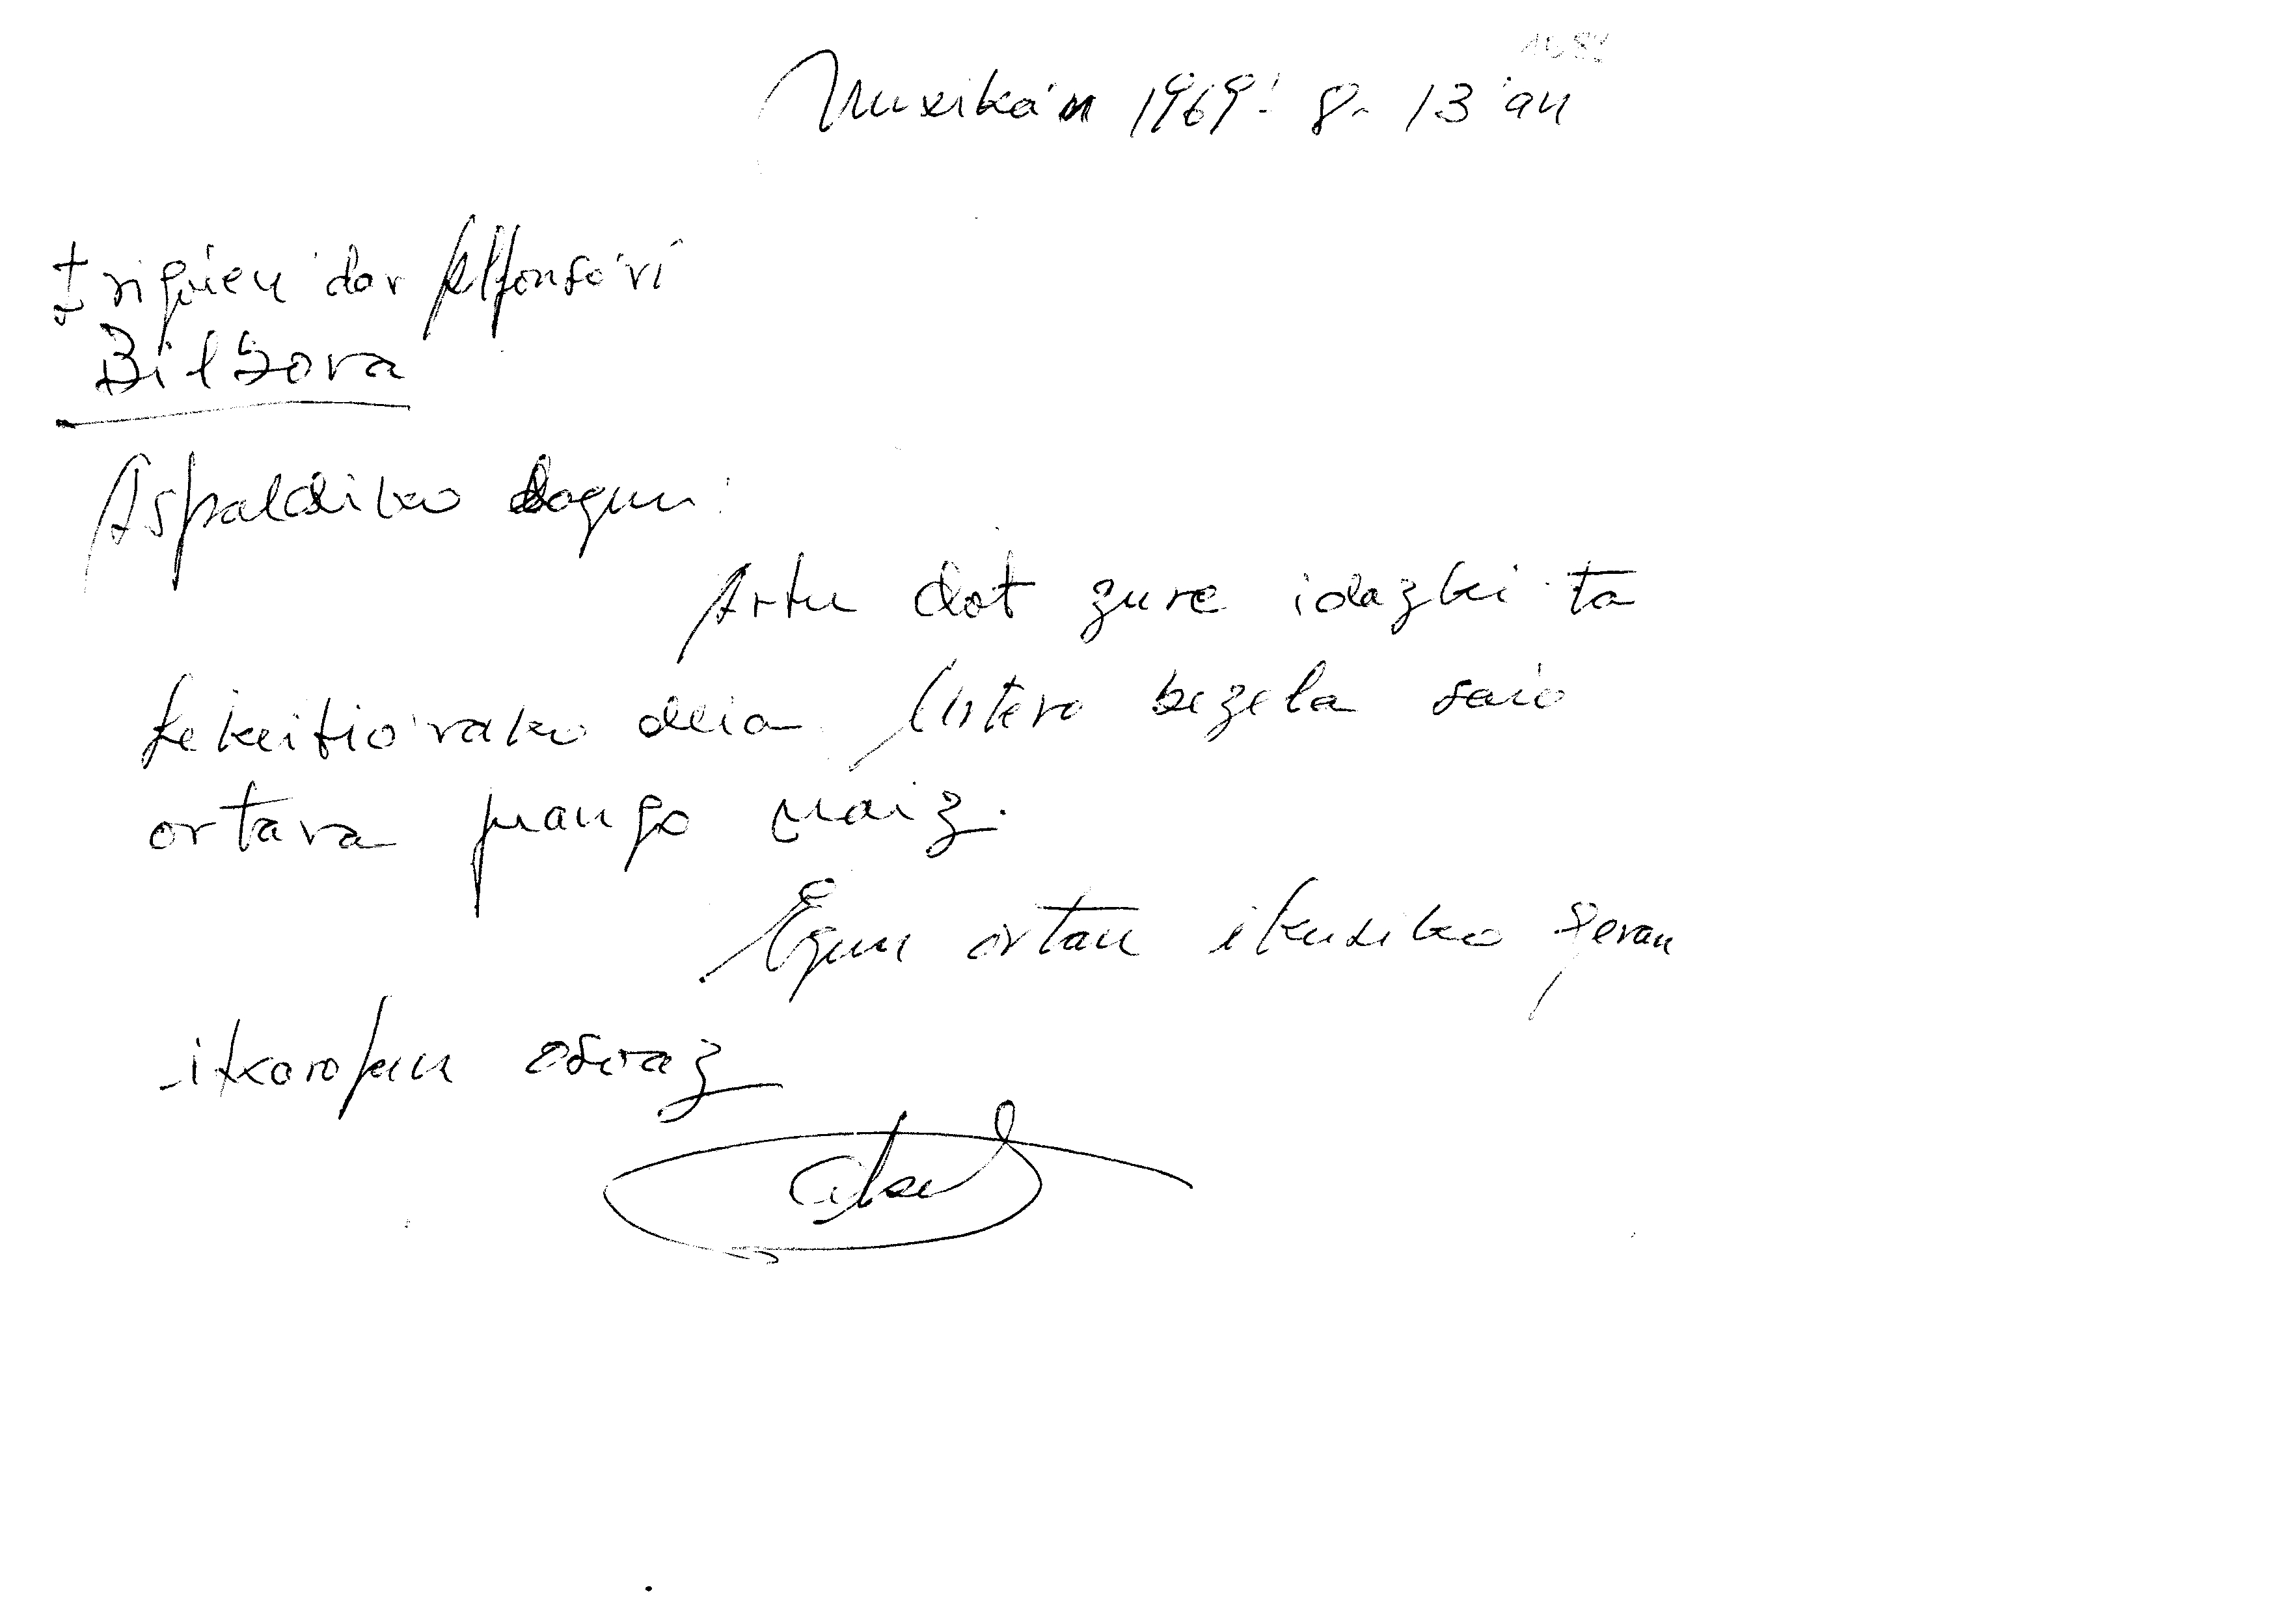 Muxika'n 1969'. 8. 13'an
Irigoien'dar Alfonso'ri
Bilbora
Aspaldiko lagun:
Artu dot zure idazki ta
Lekeitio'rako deia. Entzule bezela saio
ortara juango naiz.
Egun ortan ikusiko geran
itxaropen osoaz